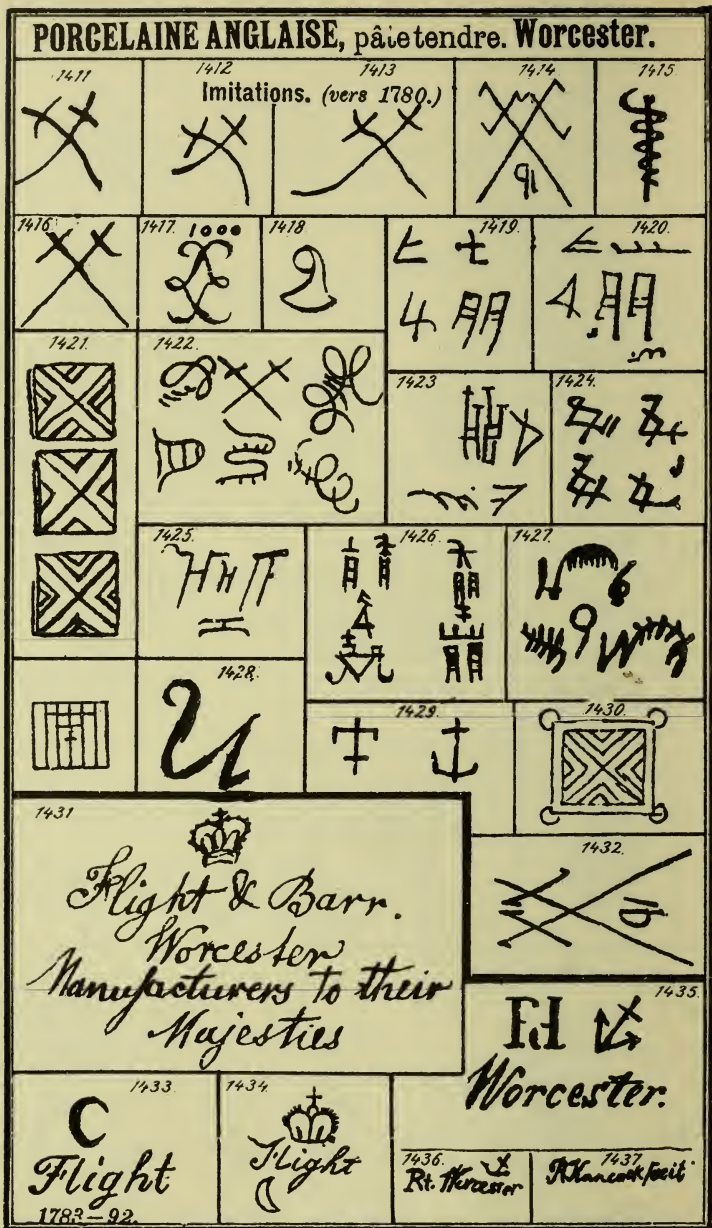 PORCELAINE ANGLAISE, pâte tendre. Worcester.
1411
1412
1413
Imitations. (vers 1780.)
1414
1415
1416
1417
1000
1418
1419
1420
1421
1422
1423
1424
1425
1426
1427
1428
1429
1430
1431
Flight & Barr.
Worcester
Manufacturers to their
Majesties
1432
1433
C
Flight
1783–92.
1434
Flight
1435
Worcester.
1436
Rt. Worcester
1437
R Hancock fecit